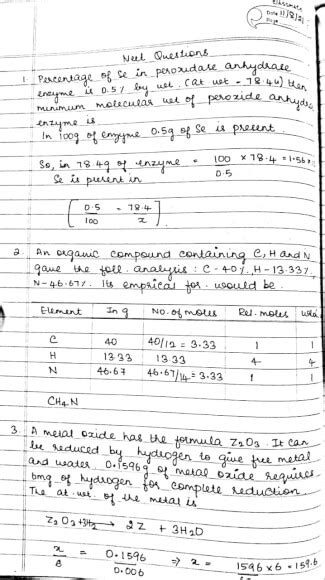 Classmate
Date 11/8/21
Page
Neet Questions
1. Percentage of Se in peroxidase anhydrase
enzyme is 0.5% by wt. (at wt = 78.4u) then
minimum molecular wt of peroxide anhydrase
enzyme is
In 100g of enzyme 0.5g of Se is present.
So, in 78.4g of enzyme = 100/0.5 × 78.4 = 1.56 ×
Se is present in
[0.5/100 = 78.4/x]
2. An organic compound containing C, H and N
gave the foll. analysis : C-40%, H-13.33%,
N-46.67%. Its emprical for. would be.
Element In g No. of moles Rel. moles
C 40 40/12 = 3.33 1 1
H 13.33 13.33 4 4
N 46.67 46.67/14 = 3.33 1 1
CH4N
3. A metal oxide has the formula Z2O3. It can
be reduced by hydrogen to give free metal
and water. 0.1596g of metal oxide requires
6mg of hydrogen for complete reduction.
The at. wt. of the metal is
Z2O3 + 3H2 → 2Z + 3H2O
x/6 = 0.1596/0.006 ⇒ x = 1596 × 6 = 159.6